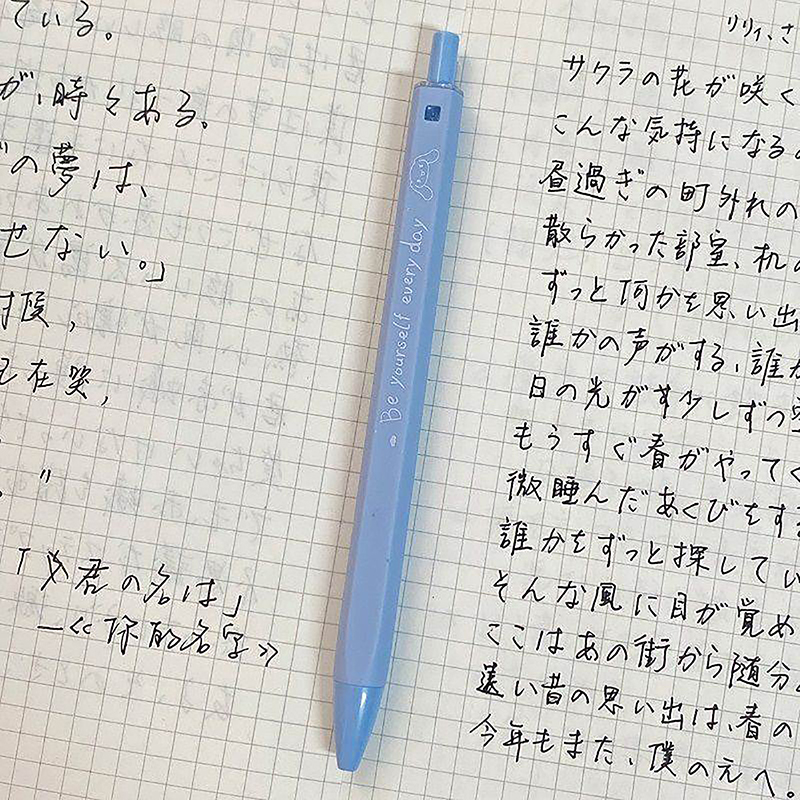 ている。
が、時々ある。
の夢は、
せない。」
时候，
在哭，
"
「君の名は」
—《你的名字》
Be yourself every day
リリィ、さ
サクラの花が咲く
こんな気持になる
昼過ぎの町外れの
散らかった部室、机
ずっと何かを思い出
誰かの声がする、誰か
日の光が少しずつ
もうすぐ春がやってく
微睡んだあくびをす
誰かをずっと探してい
そんな風に目が覚め
ここはあの街から随分
遠い昔の思い出は、春の
今年もまた、僕の元へ。